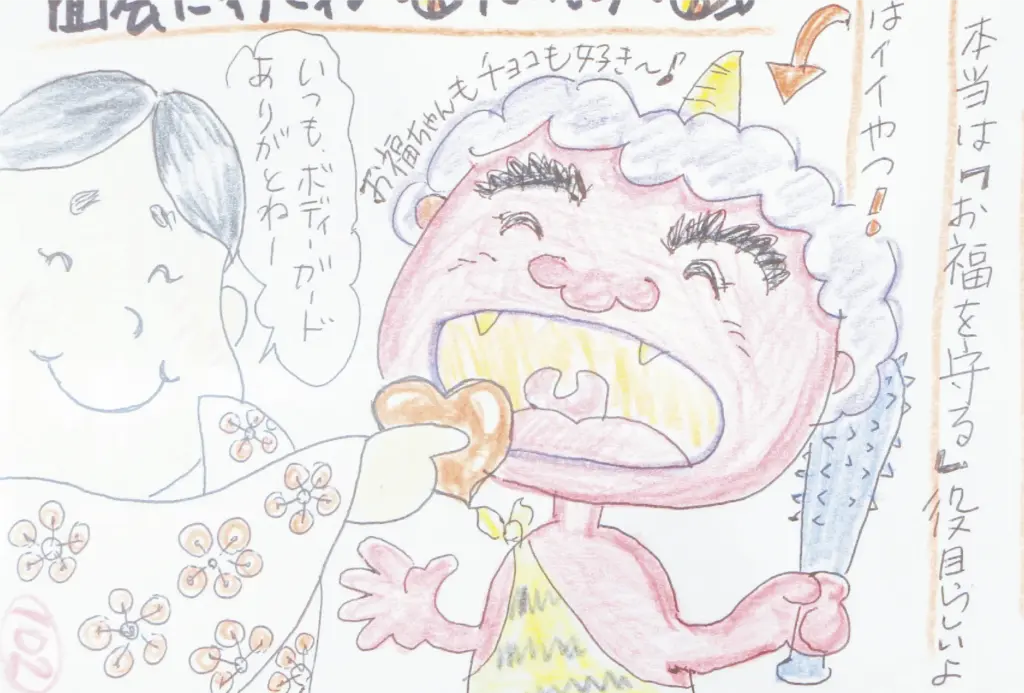 本当は『お福を守る』役目らしいよ
はイイやつ!
お福ちゃんもチョコも好き〜♪
いつも、ボディーガード
ありがとねー
102